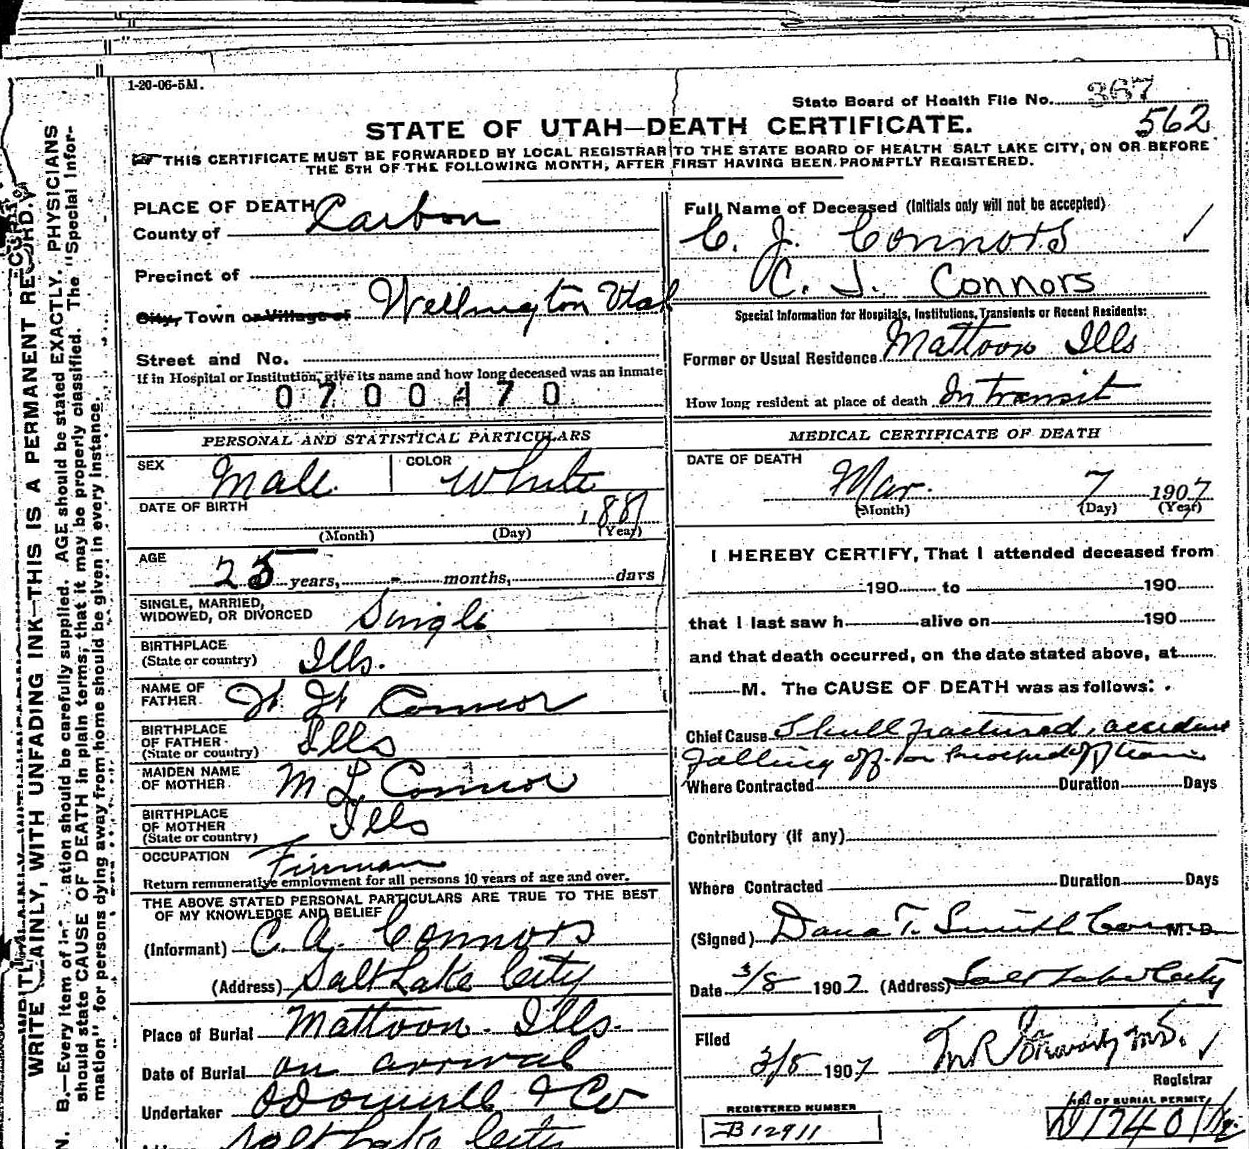 1-20-06-5M.
State Board of Health File No. 367
562
STATE OF UTAH—DEATH CERTIFICATE.
THIS CERTIFICATE MUST BE FORWARDED BY LOCAL REGISTRAR TO THE STATE BOARD OF HEALTH SALT LAKE CITY, ON OR BEFORE
THE 5TH OF THE FOLLOWING MONTH, AFTER FIRST HAVING BEEN PROMPTLY REGISTERED.
PLACE OF DEATH
County of Carbon
Precinct of
City, Town or Village of Wellington Utah
Street and No.
If in Hospital or Institution, give its name and how long deceased was an inmate
0700470
PERSONAL AND STATISTICAL PARTICULARS
SEX Male COLOR White
DATE OF BIRTH 1881
(Month) (Day) (Year)
AGE 25 years, - months, days
SINGLE, MARRIED,
WIDOWED, OR DIVORCED Single
BIRTHPLACE
(State or country) Ills.
NAME OF
FATHER Connor
BIRTHPLACE
OF FATHER
(State or country) Ills
MAIDEN NAME
OF MOTHER M L Connor
BIRTHPLACE
OF MOTHER
(State or country) Ills
OCCUPATION Fireman
Return remunerative employment for all persons 10 years of age and over.
THE ABOVE STATED PERSONAL PARTICULARS ARE TRUE TO THE BEST
OF MY KNOWLEDGE AND BELIEF
(Informant) C. A. Connors
(Address) Salt Lake City
Place of Burial Mattoon Ills.
Date of Burial on arrival
Undertaker O'Donnell & Co
Salt Lake City
Full Name of Deceased (Initials only will not be accepted)
C. J. Connors
C. J. Connors
Special Information for Hospitals, Institutions, Transients or Recent Residents:
Former or Usual Residence Mattoon Ills
How long resident at place of death In transit
MEDICAL CERTIFICATE OF DEATH
DATE OF DEATH
Mar. 7 1907
(Month) (Day) (Year)
I HEREBY CERTIFY, That I attended deceased from
190 to 190
that I last saw h alive on 190
and that death occurred, on the date stated above, at
M. The CAUSE OF DEATH was as follows:
Chief Cause Skull fractured, accident
falling off or knocked off train
Where Contracted Duration Days
Contributory (if any)
Where Contracted Duration Days
(Signed) Dana T. Smith M. D.
Date 3/8 1907 (Address) Salt Lake City
Filed
3/8 1907 M.D.
Registrar
REGISTERED NUMBER
B12911
OF BURIAL PERMIT
WRITE PLAINLY, WITH UNFADING INK—THIS IS A PERMANENT RECORD.
N. B.—Every item of information should be carefully supplied. AGE should be stated EXACTLY. PHYSICIANS
should state CAUSE OF DEATH in plain terms, that it may be properly classified. The "Special Infor-
mation" for persons dying away from home should be given in every instance.